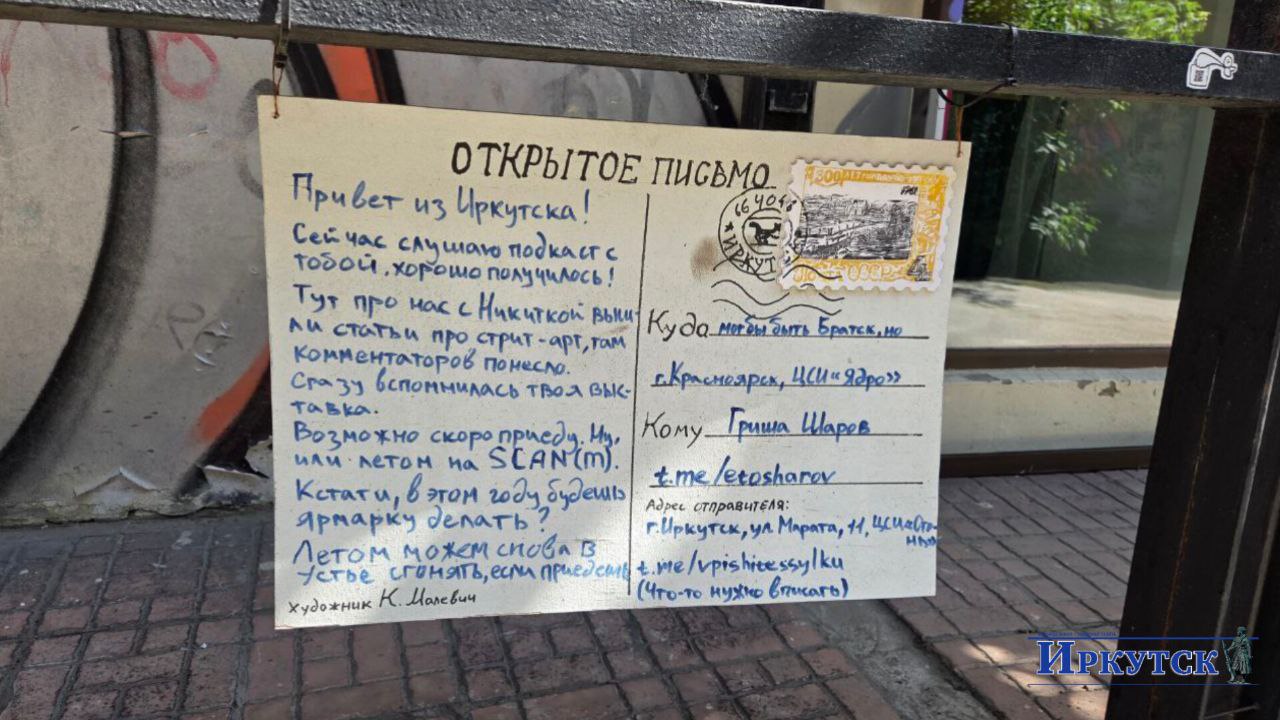 ОТКРЫТОЕ ПИСЬМО
Привет из Иркутска!
Сейчас слушаю подкаст с
тобой, хорошо получилось!
Тут про нас с Никиткой выш-
ли статьи про стрит-арт, там
комментаторов понесло.
Сразу вспомнилась твоя выс-
тавка.
Возможно скоро приеду. Ну,
или летом на SCAN(m).
Кстати, в этом году будешь
ярмарку делать?
Летом можем снова в
Усолье сгонять, если приедешь
Художник К. Малевич
ИРКУТ
Куда могбы быть Братск, но
г. Красноярск, ЦСИ «Ядро»
Кому Гриша Шаров
t.me/etosharov
Адрес отправителя:
г. Иркутск, ул. Марата, 11, ЦСИ
t.me/vpishitessylku
(Что-то нужно вписать)
Иркутск